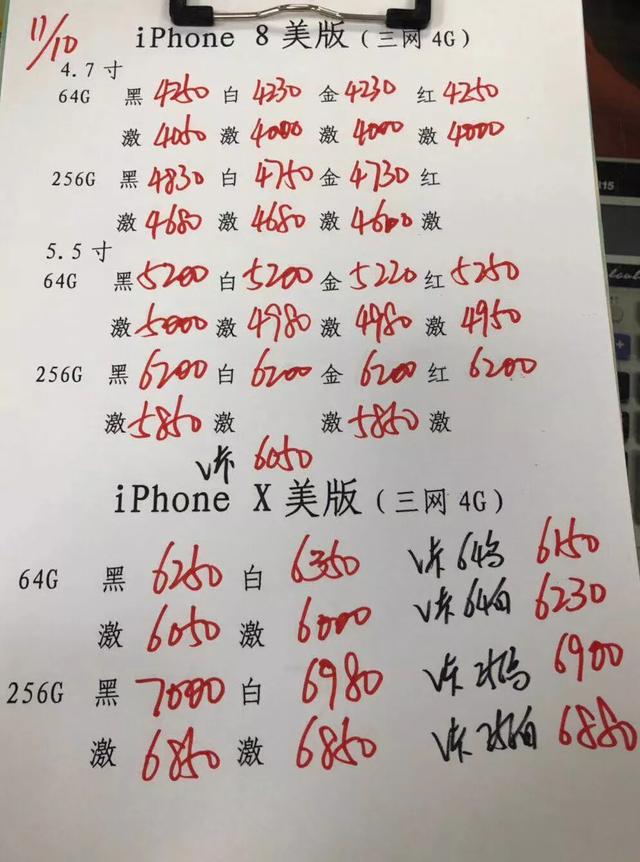 11/10
iPhone 8 美版(三网 4G)
4.7 寸
64G 黑 4250 白 4230 金 4230 红 4250
激 4050 激 4000 激 4000 激 4000
256G 黑 4830 白 4750 金 4730 红
激 4680 激 4680 激 4600 激
5.5 寸
64G 黑 5200 白 5200 金 5220 红 5250
激 5000 激 4980 激 4980 激 4950
256G 黑 6200 白 6200 金 6200 红 6200
激 5850 激 激 5850 激
卡 6050
iPhone X 美版(三网 4G)
64G 黑 6250 白 6350 卡 64 6150
激 6050 激 6000 卡 64白 6230
256G 黑 7000 白 6980 卡 6900
激 6850 激 6850 卡 6880